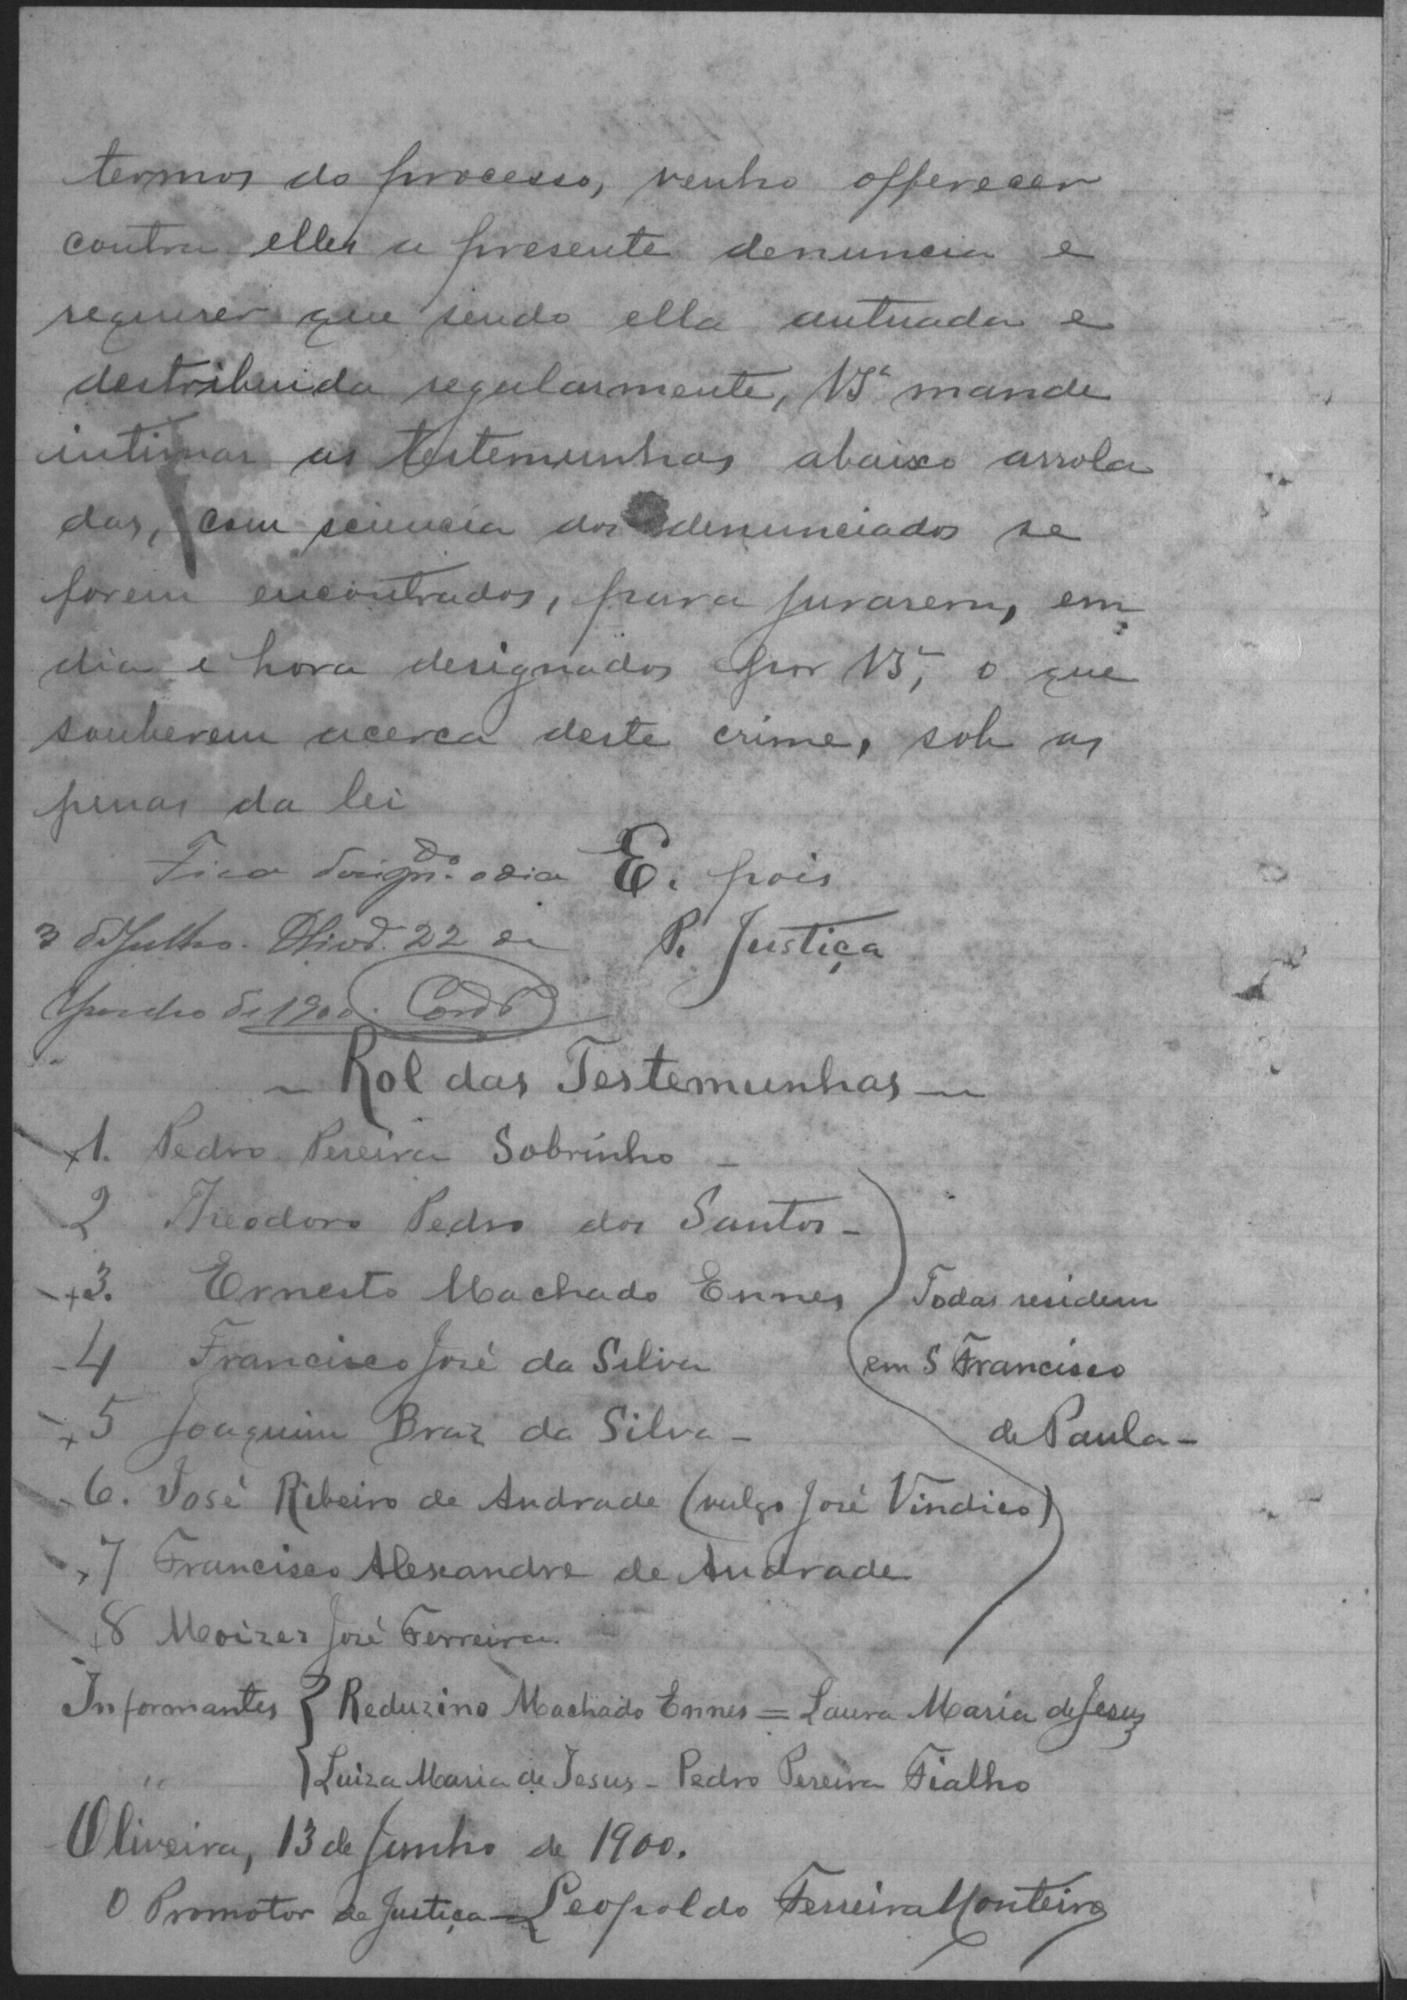 termos do processo, venho offerecer
contra elles a presente denuncia e
requerer que sendo ella autuada e
destribuida regularmente, VSª mande
intimar as testemunhas abaixo arrola
das, com sciencia dos denunciados se
forem encontrados, para jurarem, em
dia e hora designados por VSª, o que
souberem acerca deste crime, sob as
penas da lei
E. pois
P. Justiça
Fica design.do o dia
3 de Julho. Olivrª. 22 de
Junho de 1900.
~ Rol das Testemunhas ~
1. Pedro Pereira Sobrinho -
2 Theodoro Pedro dos Santos -
3. Ernesto Machado Ennes
4 Francisco José da Silva
5 Joaquim Braz da Silva -
6. José Ribeiro de Andrade (vulgo José Vindico)
7 Francisco Alexandre de Andrade
8 Moizes José Ferreira
Todas residem
em S Francisco
de Paula -
Informantes { Reduzino Machado Ennes = Laura Maria de Jesus
" { Luiza Maria de Jesus - Pedro Pereira Fialho
Oliveira, 13 de Junho de 1900.
O Promotor de Justiça - Leopoldo Ferreira Monteiro